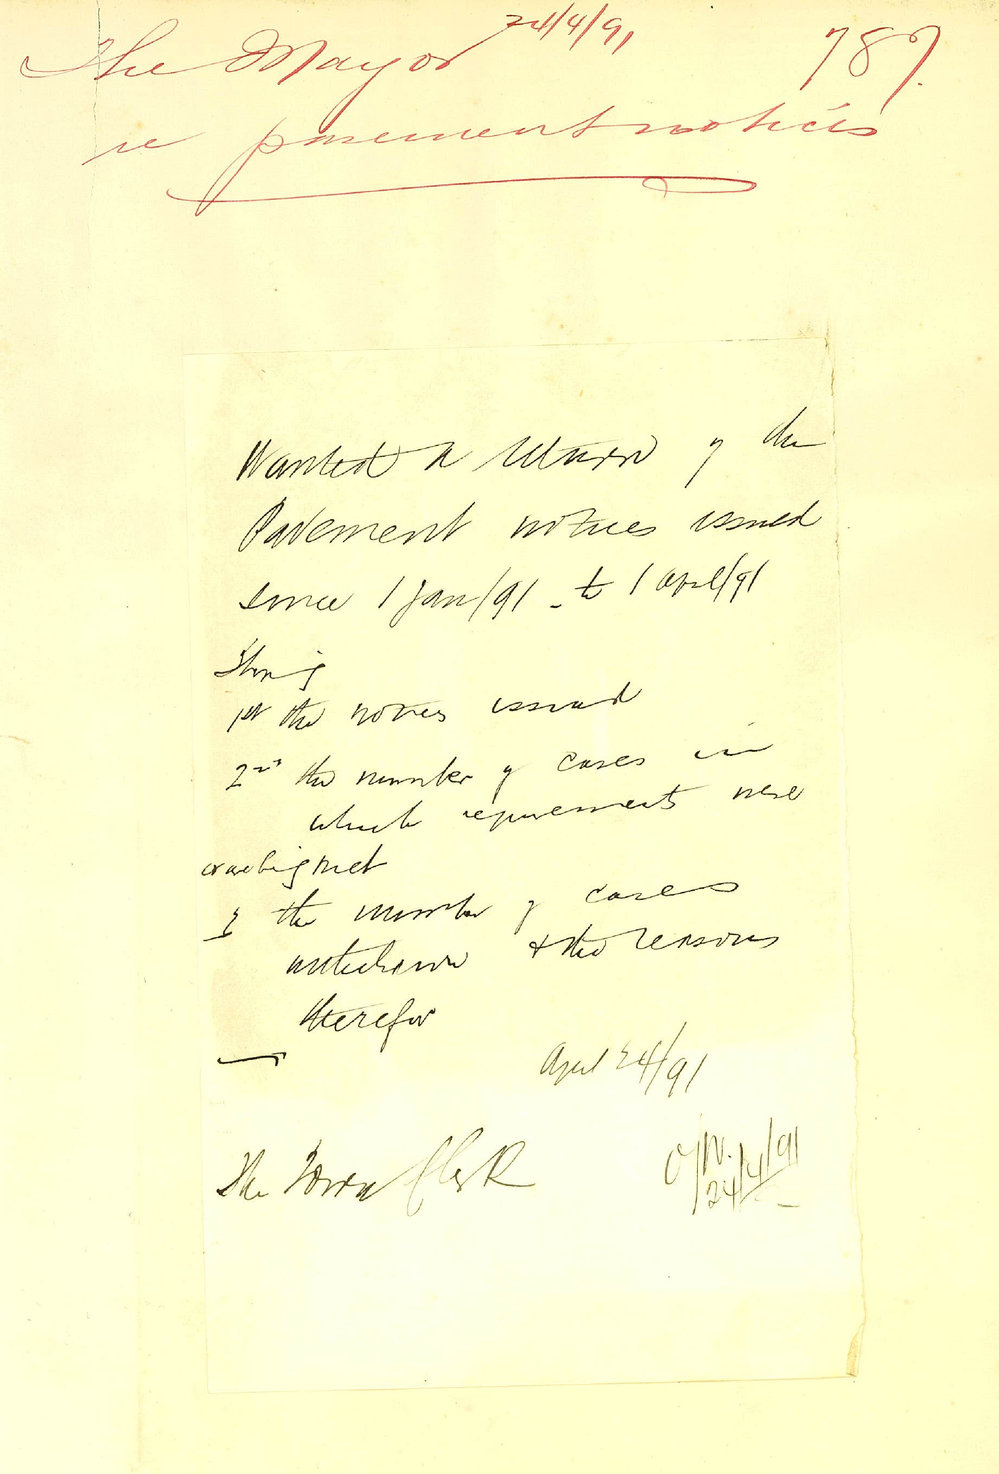 24/4/91
The Mayor 787.
re pavement notices
Wanted a return of the
Pavement notices issued
since 1 Jan/91 - to 1 April/91
Showing
1st the notices issued
2nd the number of cases in
which requirements were
or are being met
3 the number of cases
withdrawn & the reasons
therefor
April 24/91
The Town Clerk
24/4/91